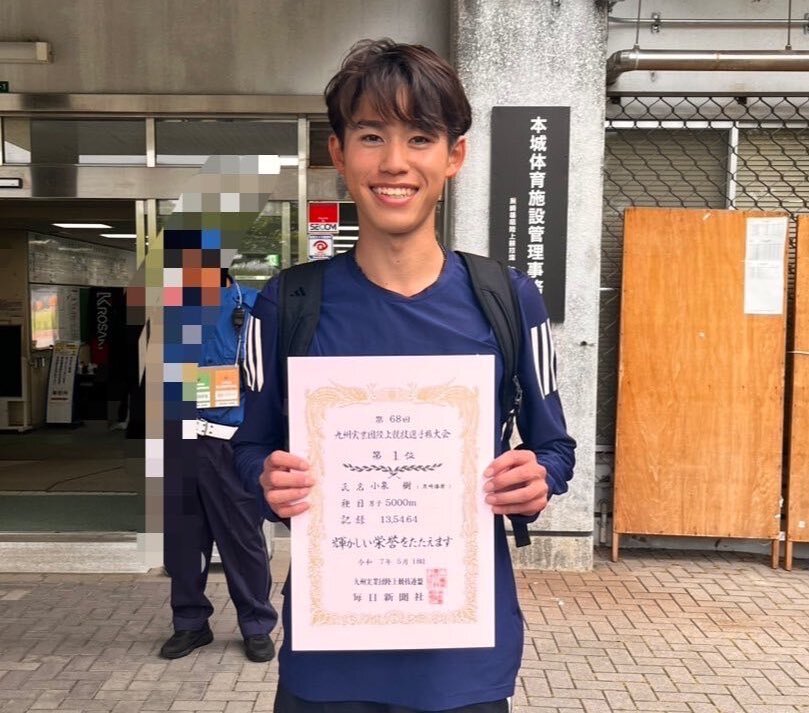 第68回
九州実業団陸上競技選手権大会
第1位
氏名 小泉 樹 (黒崎播磨)
種目 男子5000m
記録 13,54.64
輝かしい栄誉をたたえます
令和 7年 5月18日
九州実業団陸上競技連盟
毎日新聞社
本城体育施設管理事務
黒崎播磨陸上競技場
SECOM
KROSAKI